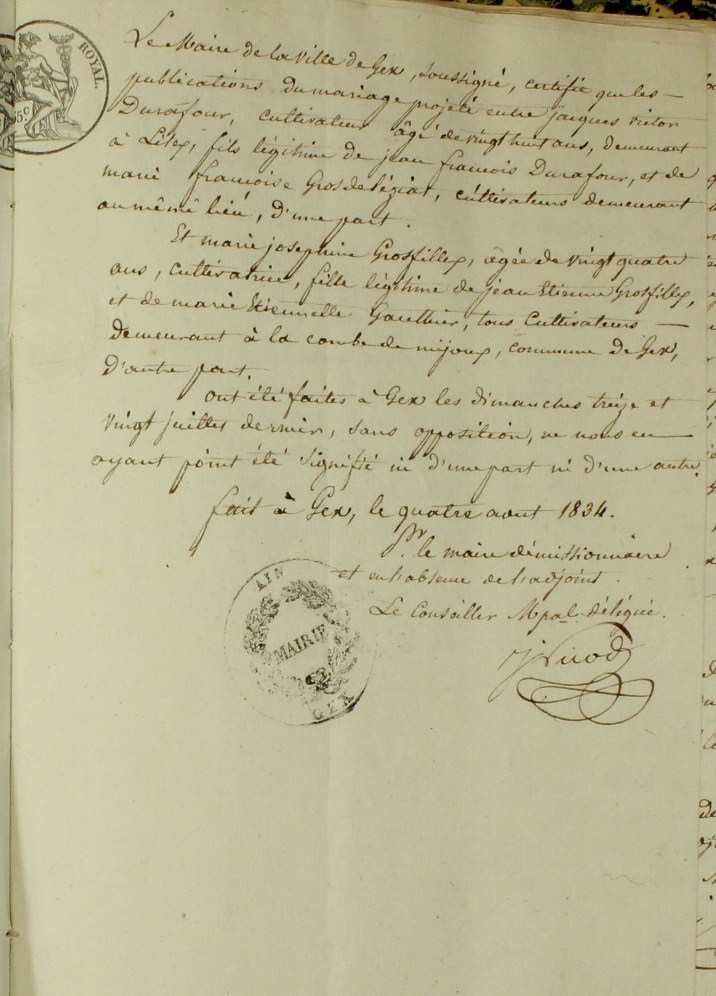 ROYAL.
5c
Le Maire de la Ville de Gex, soussigné, certifie que les —
publications du mariage projeté entre jacques victor
Durafour, cultivateur âgé de vingt huit ans, demeurant
à Lélex, fils légitime de jean francois Durafour, et de
marie francoise Grosdeléziat, cultivateurs demeurant
au même lieu, d'une part.
Et marie josephine Grosfillex, âgée de vingt quatre
ans, cultivatrice, fille légitime de jean Etienne Grosfillex,
et de marie Etiennette Gauthier, tous cultivateurs —
demeurant à la combe de mijoux, commune de Gex,
d'autre part.
ont été faites à Gex les dimanches treize et
vingt juillet dernier, sans opposition, ne nous en —
ayant point été signifié ni d'une part ni d'une autre.
fait à Gex, le quatre aout 1834.
Pr. le maire démissionnaire
et en l'absence de l'adjoint.
Le Conseiller Mpal. délégué.
AIN
MAIRIE
GEX